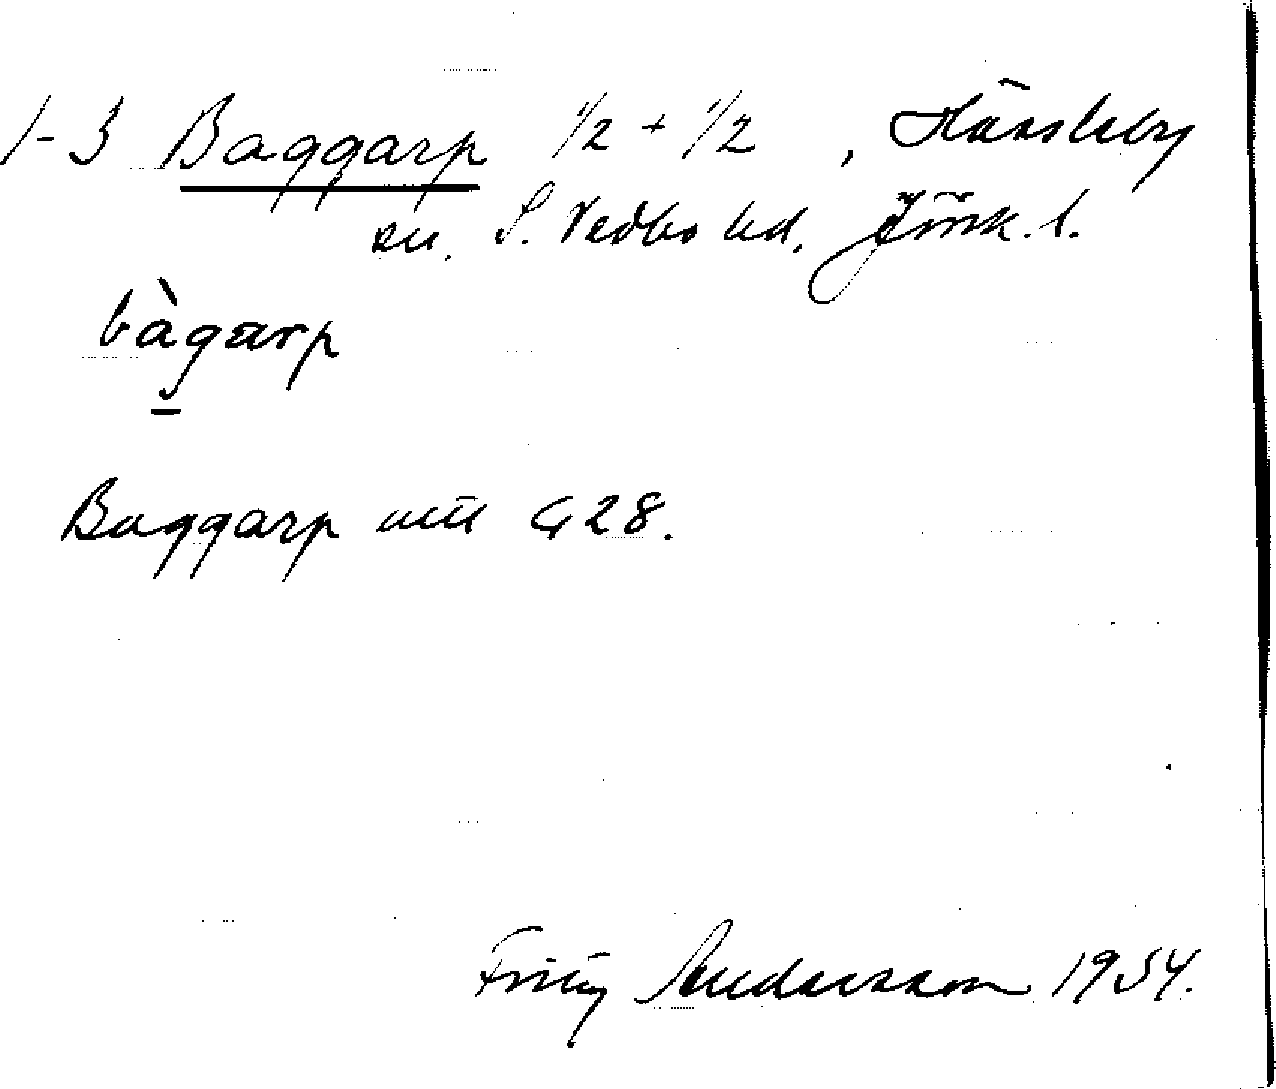 1-3 Baggarp 1/2 + 1/2 , Hässleby
sn. S. Vedbo hd. Jönk. l.
bàgarp
Baggarp G 28.
Andersson 1954.